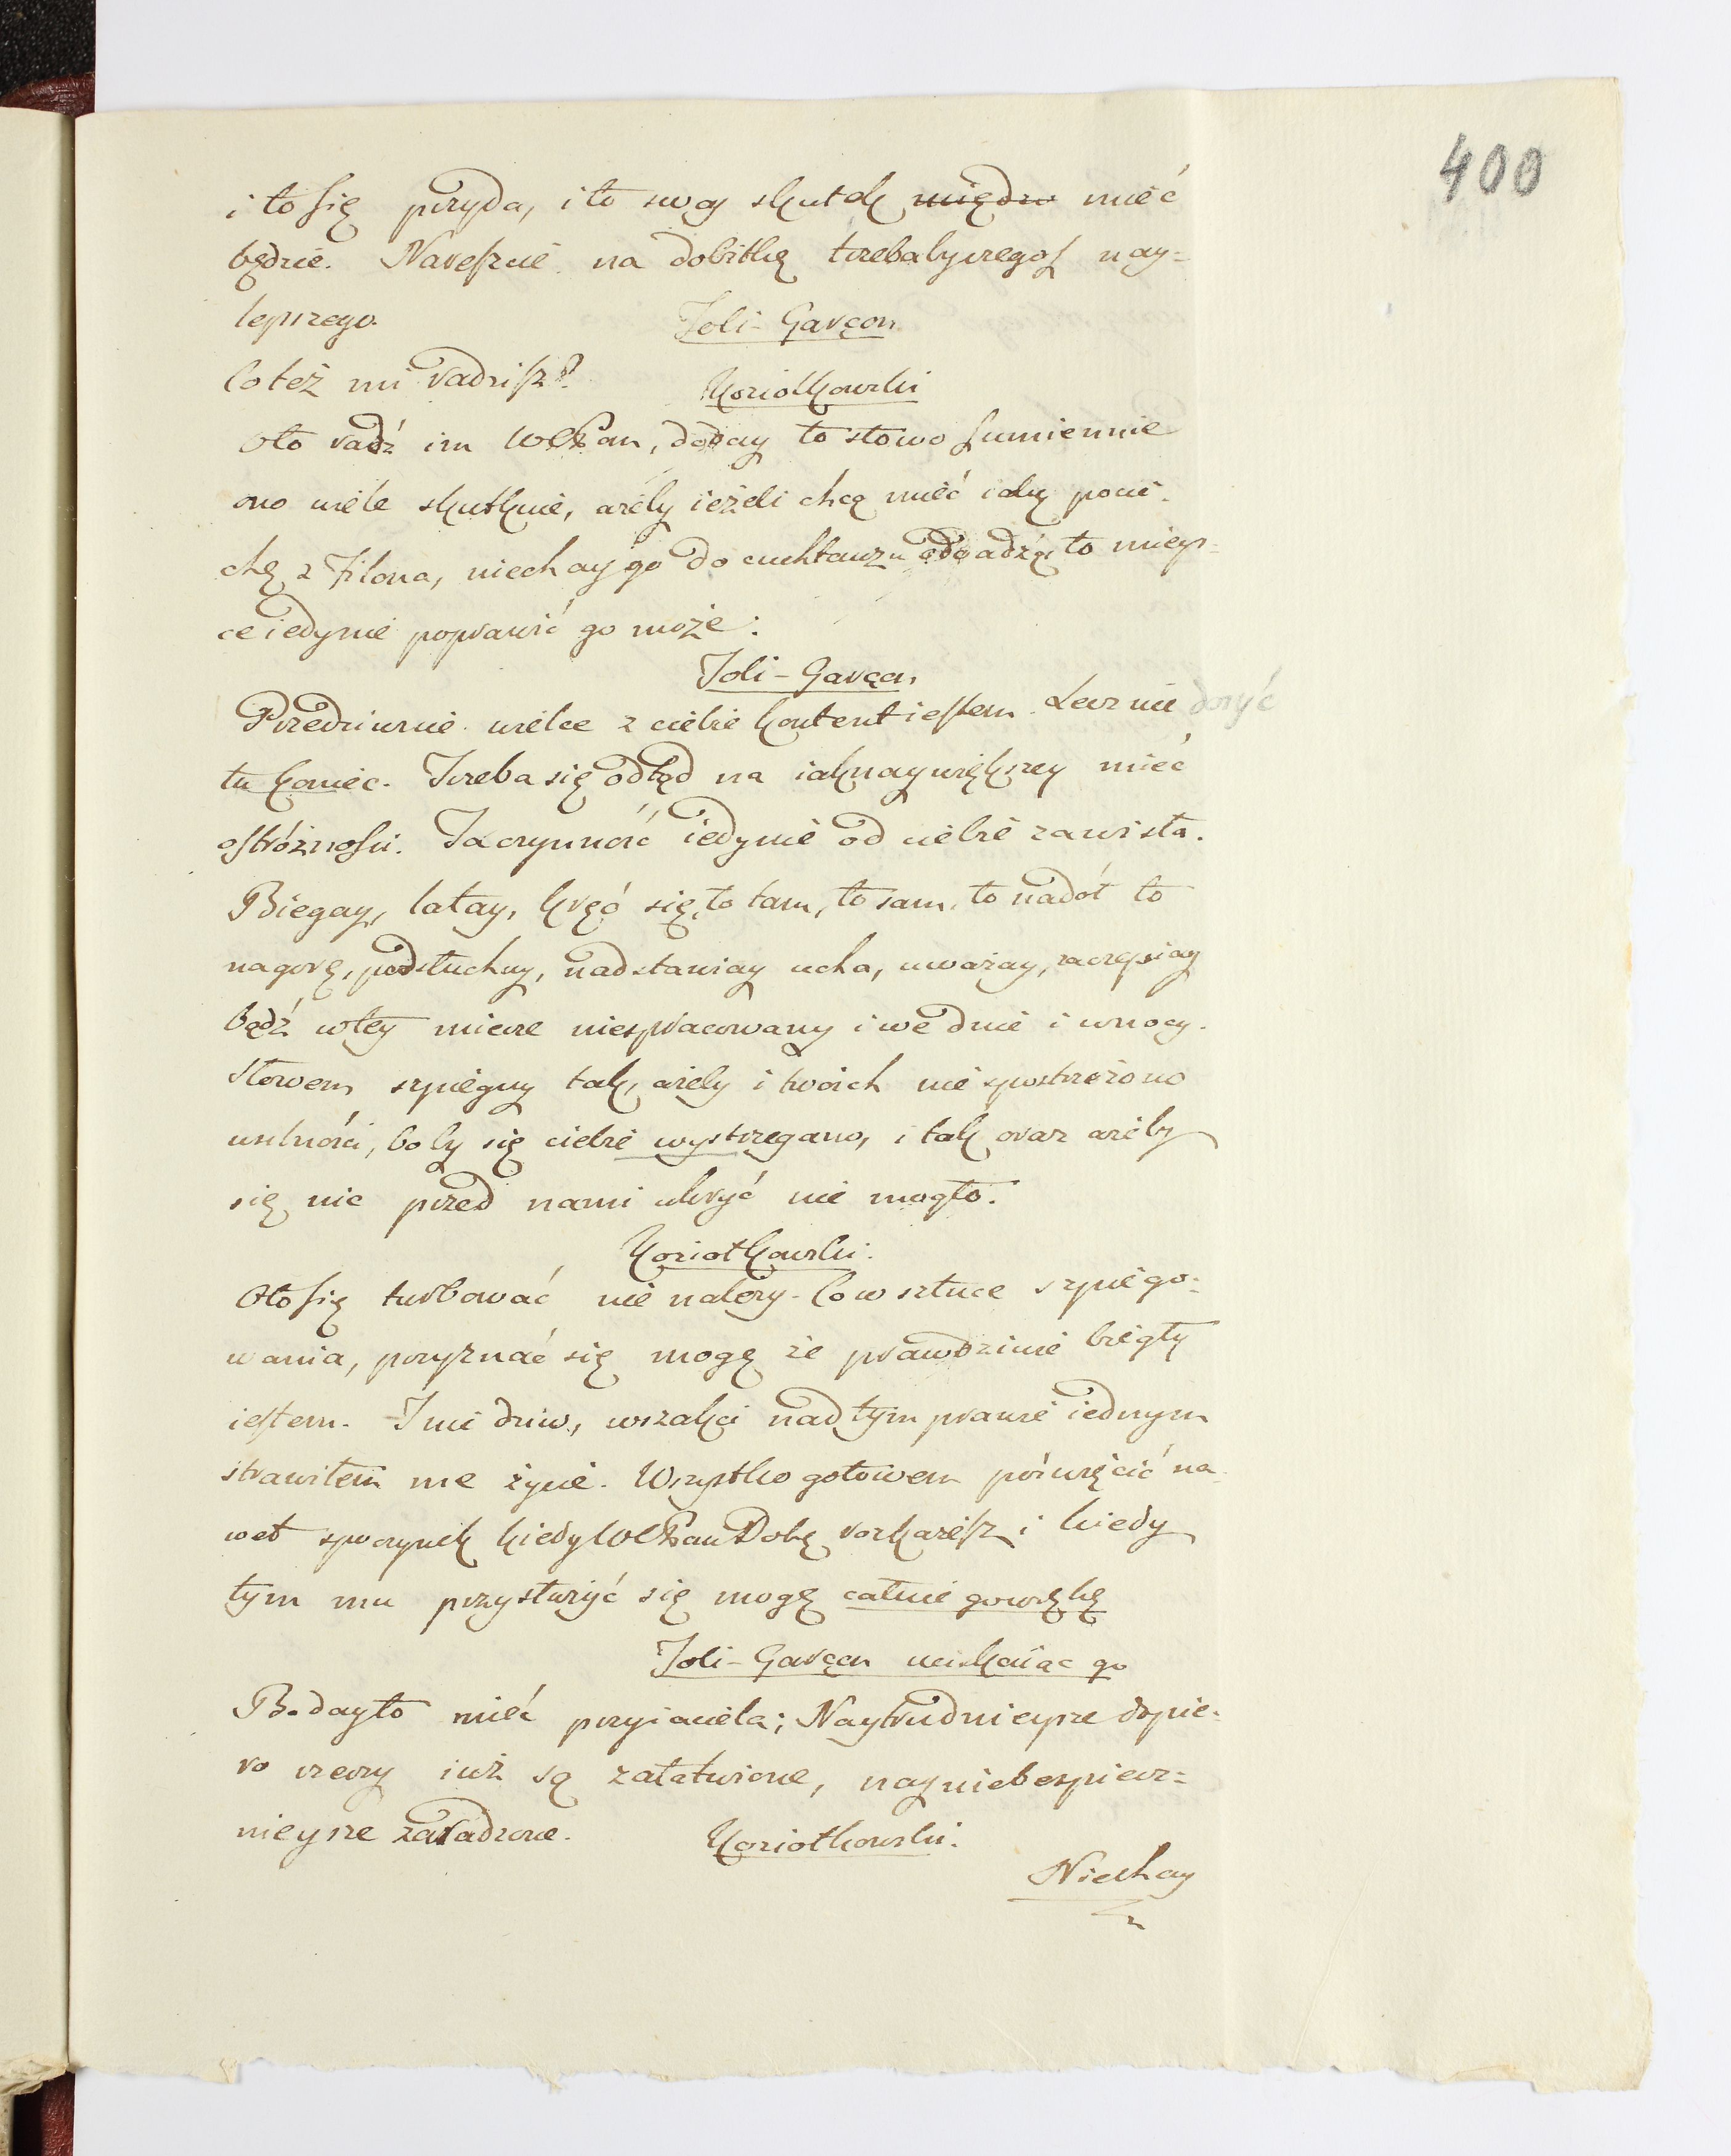 400
i to się przyda, i to swoy skutek między mieć
będzie. Nareszcie na dobitkę trzebaby czegoś nay=
lepszego.
Joli-Garçon
Co też mi radzisz?
Koziołkowski
Oto radź im WCPan, doday to słowo sumiennie
ono wiele skutkuie, ażeby ieżeli chcą mieć iaką pocie-
chę z Filona, niechay go do cuchtauzu oddadzą, to mieys-
ce iedynie poprawić go może.
Joli-Garçon
Przedziwnie. wielce z ciebie kontent iestem. Lecz nie dosyć
tu koniec. Trzeba się odtąd na iaknaywiększey mieć
ostróżności. Ta czynność iedynie od ciebie zawisła.
Biegay, latay, kręć się, to tam, to sam, to nadół to
nagorę, podsłuchuy, nadstawiay ucha, uważay, zaczepiay
bądź wtey mierze niespracowany i we dnie i wnocy.
Słowem szpieguy tak, ażeby i twoich nie spostrzeżono
usilności, boby się ciebie wystrzegano, i tak oraz ażeby
się nic przed nami ukryć nie mogło.
Koziołkowski.
Oto się turbować nie należy. Co w sztuce szpiego-
wania, przyznać się mogę że prawdziwie biegły
iestem. I nie dziw, wszakci nad tym prawie iednym
strawiłem me życie. Wszystko gotowem poświęcić na-
wet spoczynek kiedy WCPan Dobę rozkażesz i kiedy
tym mu przysłużyć się mogę całuie go w rękę
Joli-Garçon uciskaiąc go
Bodayto mieć przyiaciela; Naytrudnieysze dopie-
ro rzeczy iuż są załatwione, nayniebespiecz=
nieysze zaradzone.
Koziołkowski.
Niechay